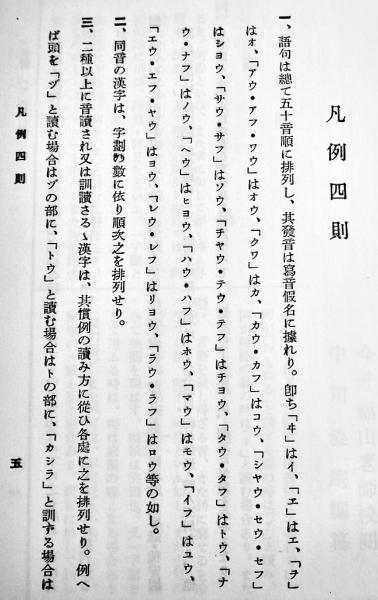 凡例四則
一、語句は總て五十音順に排列し、其發音は寫音假名に據れり。卽ち「ヰ」はイ、「ヱ」はエ、「ヲ」
はオ、「アウ・アフ・ワウ」はオウ、「クワ」はカ、「カウ・カフ」はコウ、「シヤウ・セウ・セフ」
はショウ、「サウ・サフ」はソウ、「チヤウ・テウ・テフ」はチョウ、「タウ・タフ」はトウ、「ナ
ウ・ナフ」はノウ、「ヘウ」はヒョウ、「ハウ・ハフ」はホウ、「マウ」はモウ、「イフ」はユウ、
「エウ・エフ・ヤウ」はヨウ、「レウ・レフ」はリョウ、「ラウ・ラフ」はロウ等の如し。
二、同音の漢字は、字劃の數に依り順次之を排列せり。
三、二種以上に音讀され又は訓讀さるゝ漢字は、其慣例の讀み方に從ひ各處に之を排列せり。例へ
ば頭を「ヅ」と讀む場合はヅの部に、「トウ」と讀む場合はトの部に、「カシラ」と訓ずる場合は
凡例四則
五